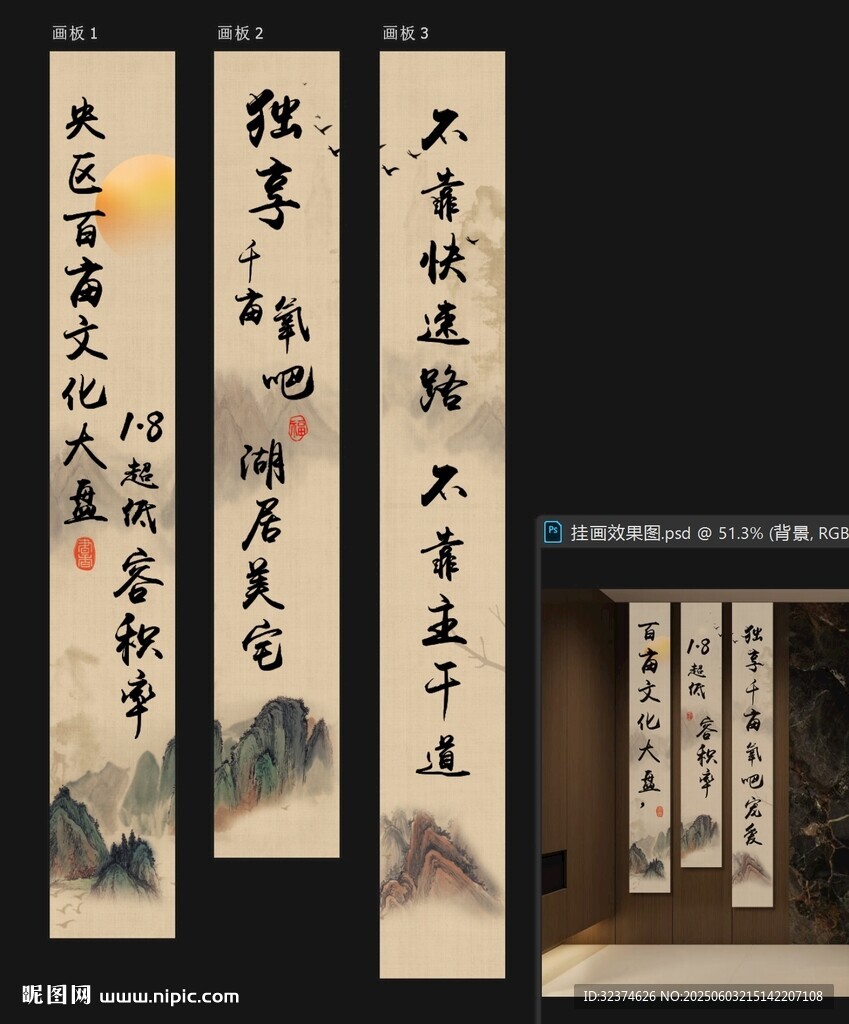 画板 1
画板 2
画板 3
央区百亩文化大盘
1·8超低容积率
書香
独享
千亩
氧吧
福
湖居美宅
不靠快速路
不靠主干道
Ps 挂画效果图.psd @ 51.3% (背景, RGB
百亩文化大盘，
1·8超低
容积率
独享千亩氧吧宠爱
昵图网 www.nipic.com
ID:32374626 NO:20250603215142207108